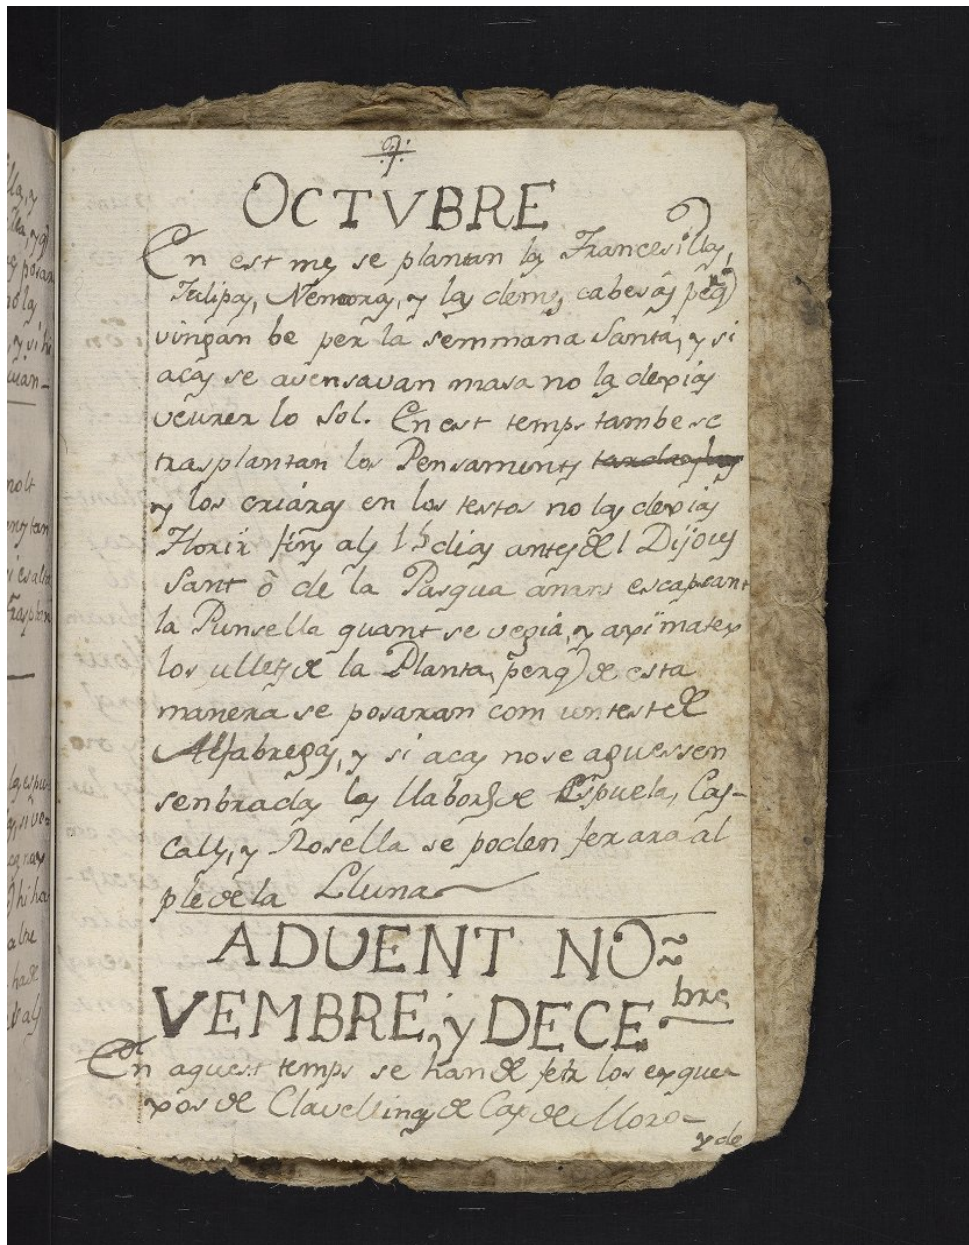 9
OCTVBRE
En est mes se plantan las Francesillas,
Tulipas, Nemoras, y las demes cabesas perq)
vingan be per la semmana Santa, y si
acas se avensavan masa no las dexias
veurer lo Sol. En est temps tambe se
trasplantan los Pensaments
y los criáras en los testos no las dexias
Florir fins als 15 dias antes de l Dijous
Sant ò de la Pasqua anant escapsant
la Punsella quant se vegia, y axi matex
los ullets de la Planta, perq) de esta
manera se posaran com un test de
Alfabregas, y si acas no se aguessen
senbradas las llabors de Espuela, Cas-
calls, y Rosella se poden fer ara al
ple de la Lluna
ADUENT NO=
VEMBRE, y DECEbre
En aquest temps se han de fer los esque
xos de Clavellinas de Cap de Moro
y de